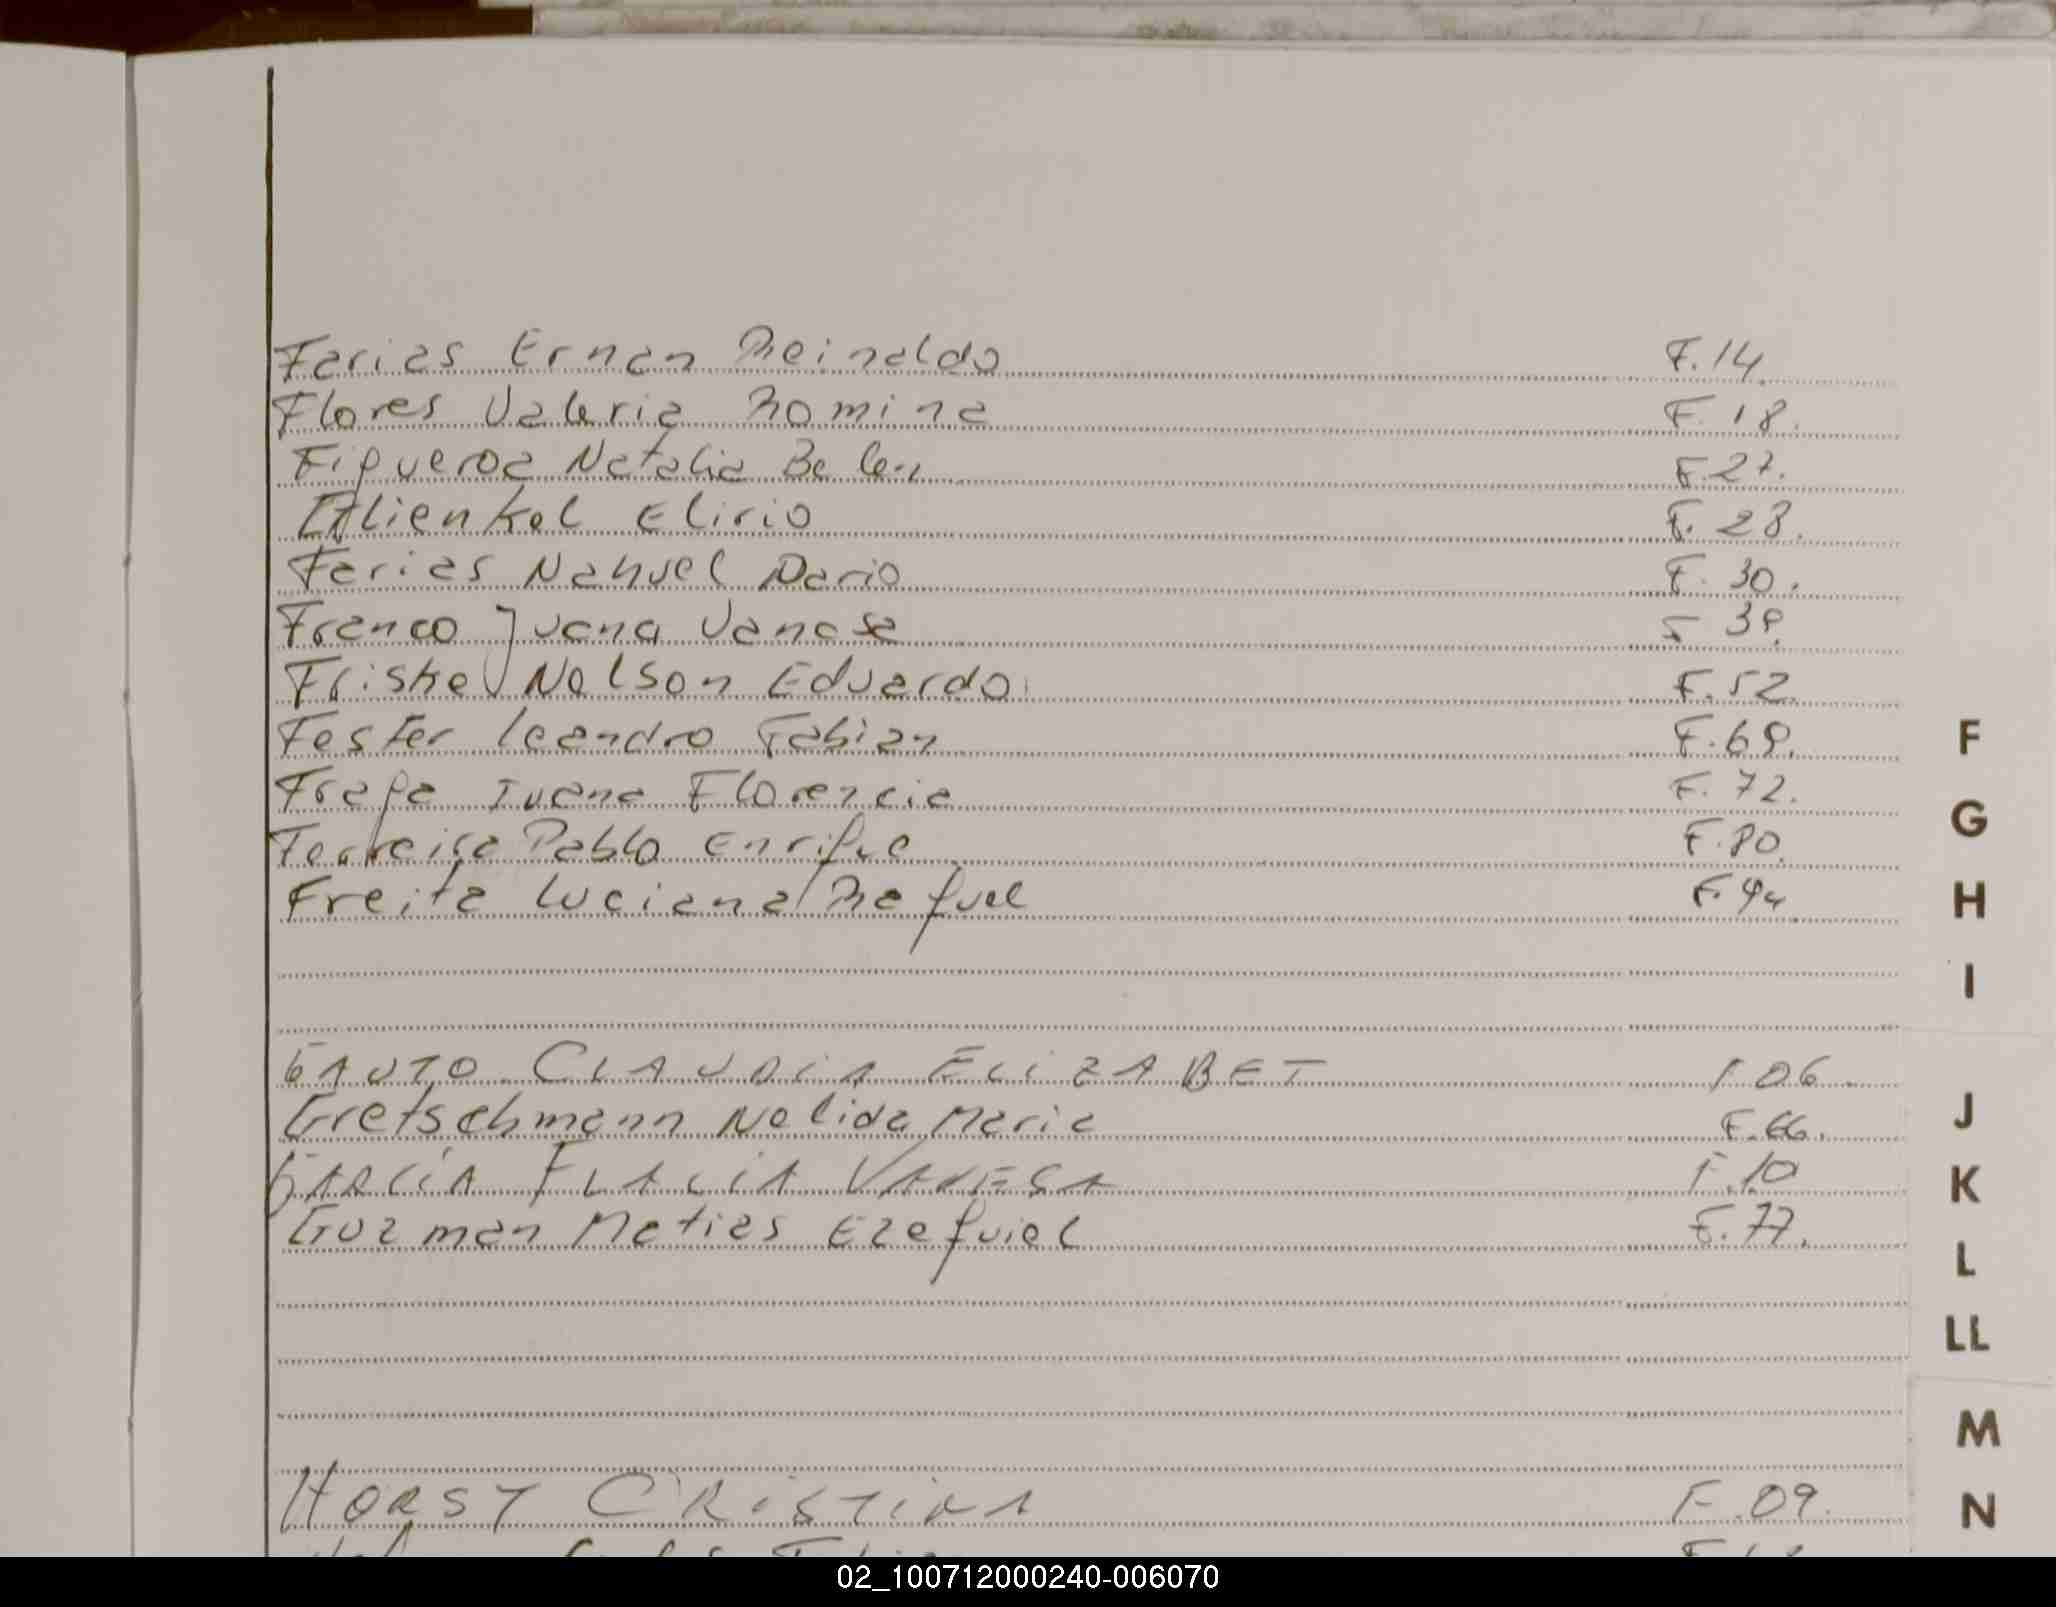 Farias Ernan Reinaldo F.14
Flores Valeria Romina F.18.
Figueroa Natalia Belen F.27.
Elirio F.28.
Farias Nahuel Dario F.30.
Franco Juana Vanesa F 39.
Friske Nelson Eduardo F.52.
Fester Leandro Fabian F.69.
Fraga Ivana Florencia F.72.
Ferreira Pablo Enrique F.80.
Freita Luciana Raquel F.94.
GAUTO CLAUDIA ELIZABET F.06.
Gretschmann Nelida Maria F.66.
GARCÍA VANESA F.10
Guzman Matias Ezequiel F.77.
HORST CRISTINA F.09.
F
G
H
I
J
K
L
LL
M
N
02_100712000240-006070